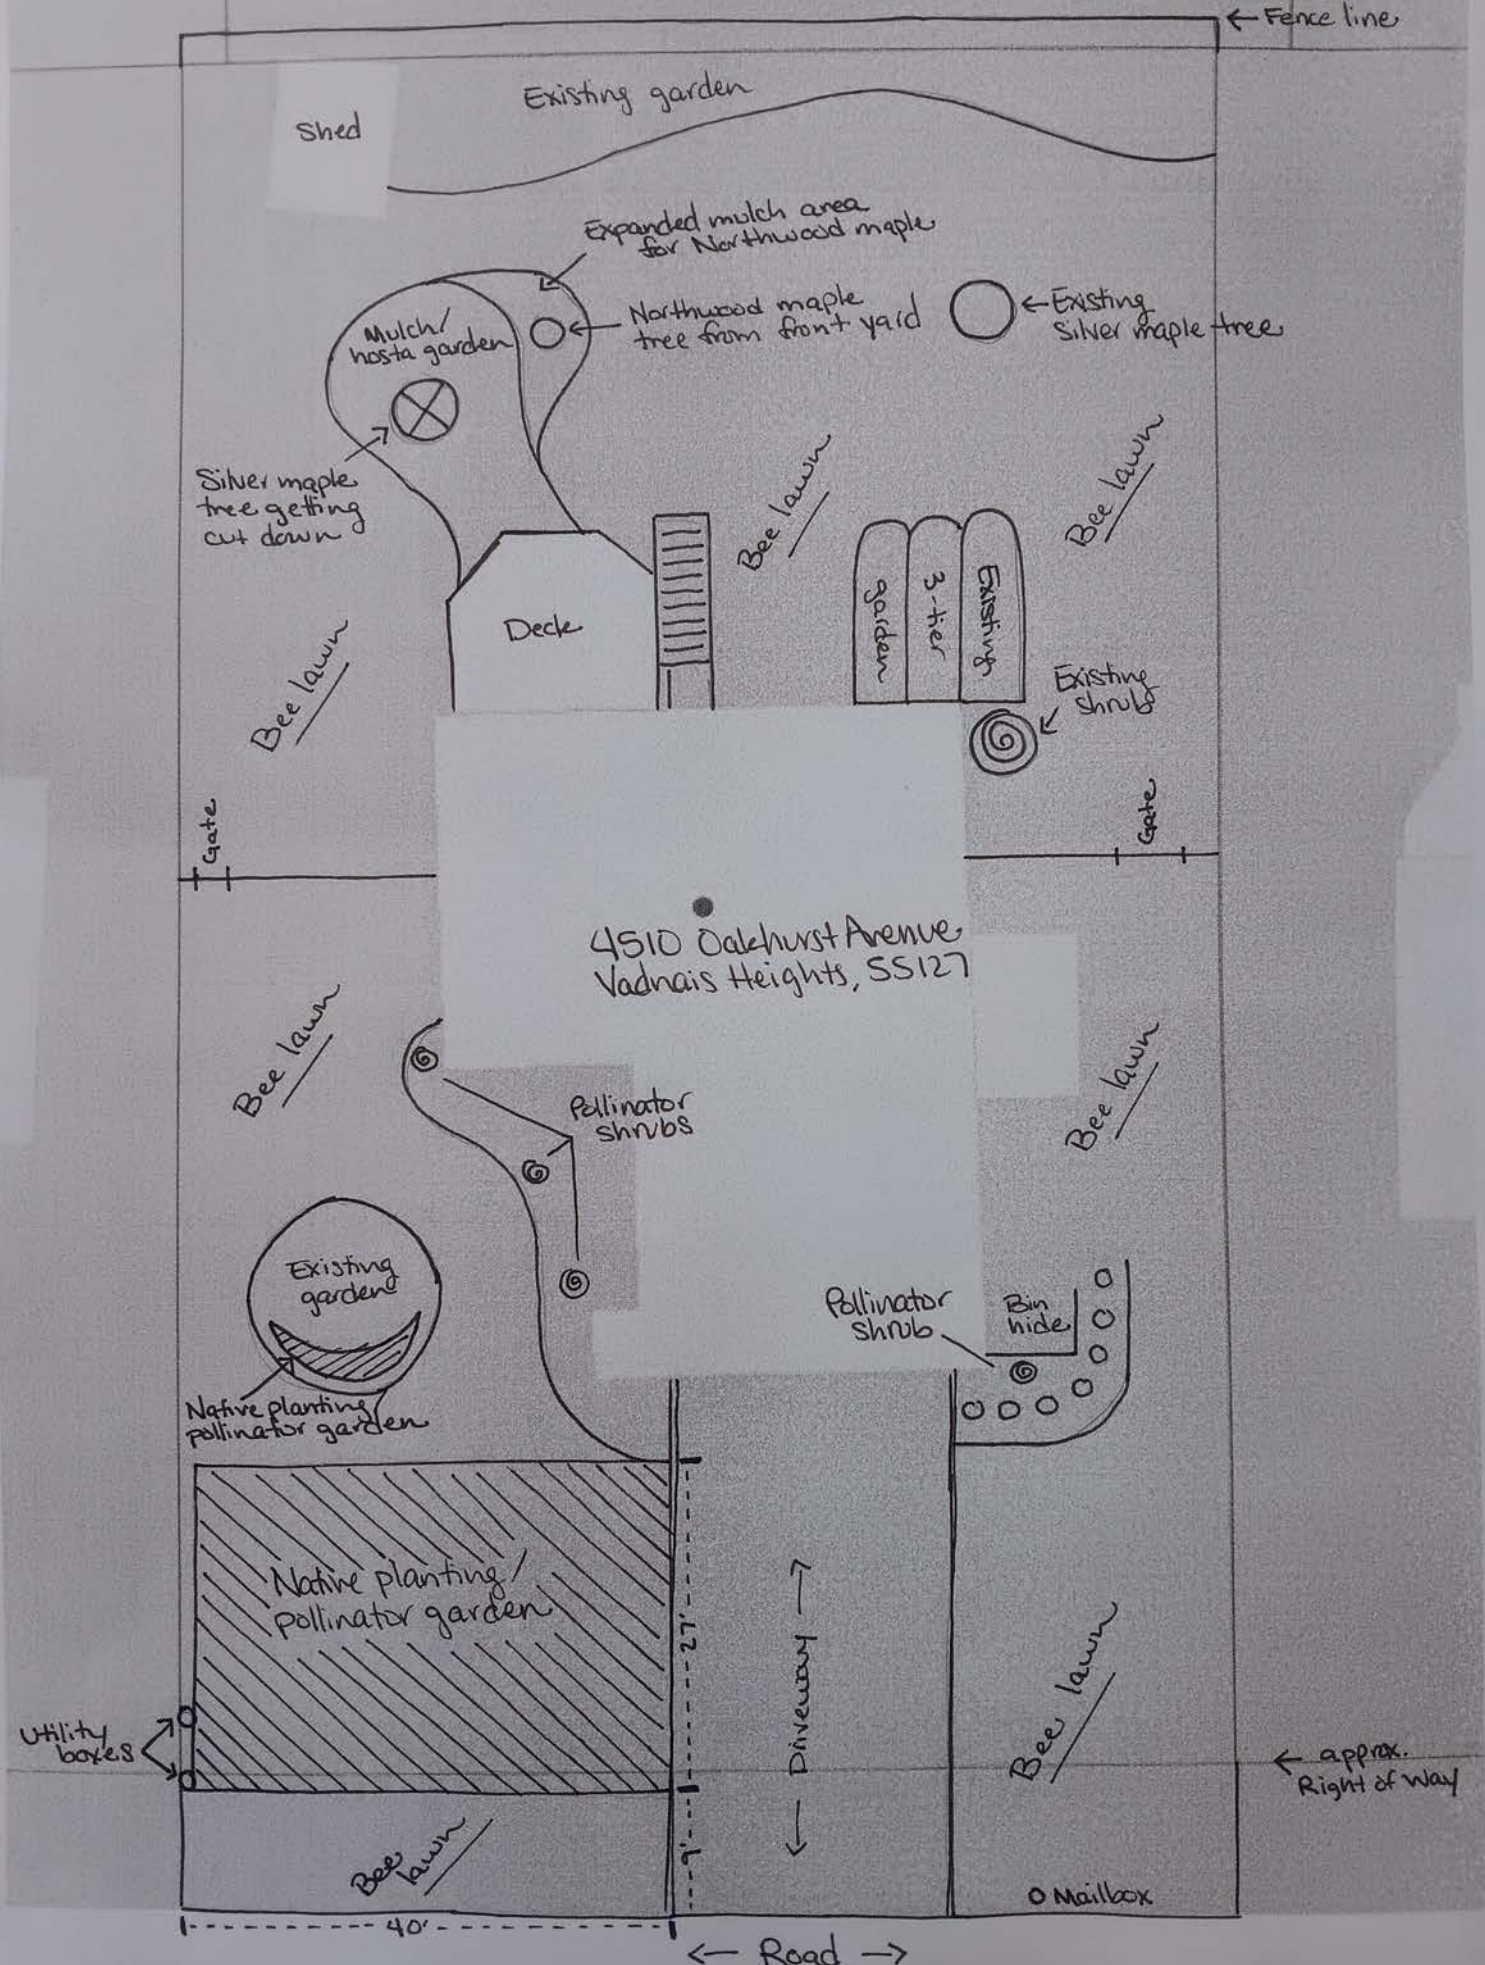 ← Fence line
Existing garden
Shed
Expanded mulch area
for Northwood maple
Mulch/
hosta garden
Northwood maple
tree from front yard
←Existing
Silver maple tree
Silver maple
tree getting
cut down
Bee lawn
Bee lawn
Bee lawn
Deck
garden
3-tier
Existing
Existing
shrub
Gate
Gate
4510 Oakhurst Avenue
Vadnais Heights, 55127
Bee lawn
Bee lawn
Pollinator
shrubs
Existing
garden
Pollinator
shrub
Bin
hide
Native planting/
pollinator garden
Native planting/
pollinator garden
27'
← Driveway →
Bee lawn
Utility
boxes
← approx.
Right of Way
Bee lawn
9'
Mailbox
40'
← Road →